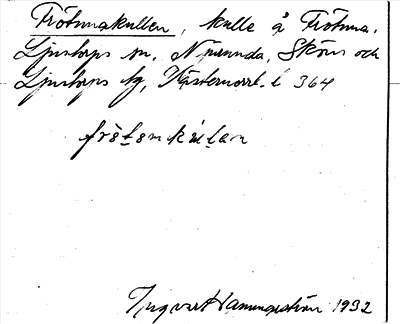 Frötunakullen, kulle å Frötuna,
Ljustorps sn, N runnda, Sköns och
Ljustorps tg, Västernorrl. l 364
frötǝnkulan
Ingvar Hammarström 1932